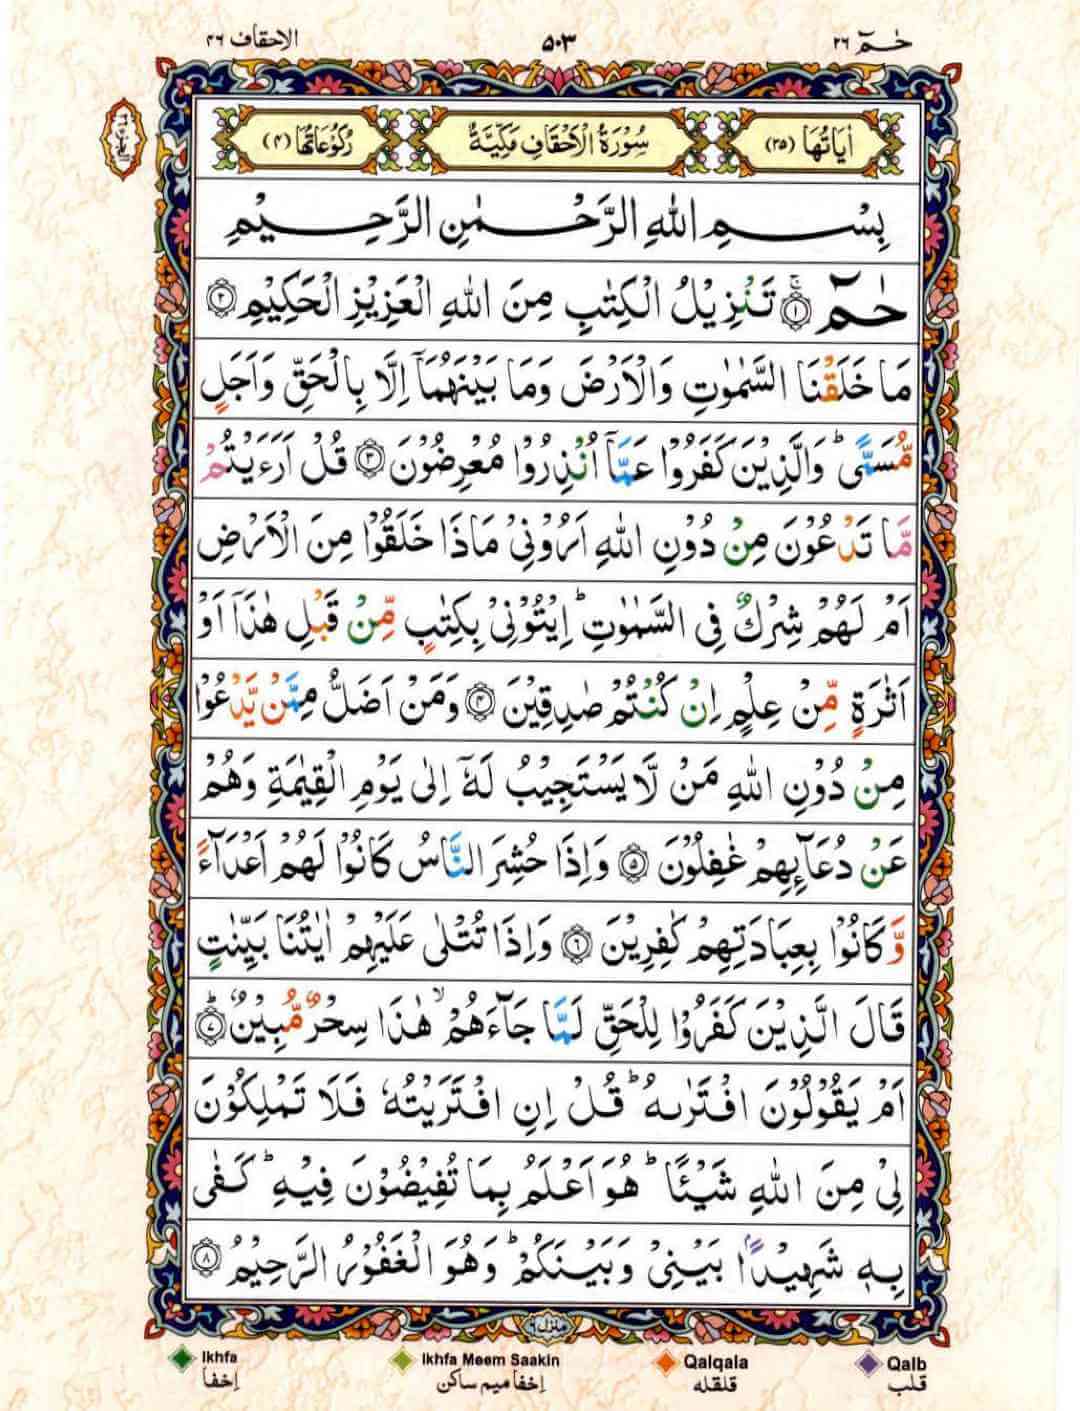 حٰمٓ ٢٦
٥٠٣
الاحقاف ٤٦
اٰیَاتُهَا (٣٥)
سُوْرَةُ الْاَحْقَافِ مَكِّیَّةٌ
رُكُوْعَاتُهَا (٤)
بِسْمِ اللهِ الرَّحْمٰنِ الرَّحِیْمِ
حٰمٓ ۚ ١ تَنْزِیْلُ الْكِتٰبِ مِنَ اللهِ الْعَزِیْزِ الْحَكِیْمِ ٢
مَا خَلَقْنَا السَّمٰوٰتِ وَالْاَرْضَ وَمَا بَیْنَهُمَاۤ اِلَّا بِالْحَقِّ وَاَجَلٍ
مُّسَمًّی ؕ وَالَّذِیْنَ كَفَرُوْا عَمَّاۤ اُنْذِرُوْا مُعْرِضُوْنَ ٣ قُلْ اَرَءَیْتُمْ
مَّا تَدْعُوْنَ مِنْ دُوْنِ اللهِ اَرُوْنِیْ مَاذَا خَلَقُوْا مِنَ الْاَرْضِ
اَمْ لَهُمْ شِرْكٌ فِی السَّمٰوٰتِ ؕ اِیْتُوْنِیْ بِكِتٰبٍ مِّنْ قَبْلِ هٰذَاۤ اَوْ
اَثٰرَةٍ مِّنْ عِلْمٍ اِنْ كُنْتُمْ صٰدِقِیْنَ ٤ وَمَنْ اَضَلُّ مِمَّنْ یَّدْعُوْا
مِنْ دُوْنِ اللهِ مَنْ لَّا یَسْتَجِیْبُ لَهٗۤ اِلٰی یَوْمِ الْقِیٰمَةِ وَهُمْ
عَنْ دُعَآىِٕهِمْ غٰفِلُوْنَ ٥ وَاِذَا حُشِرَ النَّاسُ كَانُوْا لَهُمْ اَعْدَآءً
وَّ كَانُوْا بِعِبَادَتِهِمْ كٰفِرِیْنَ ٦ وَاِذَا تُتْلٰی عَلَیْهِمْ اٰیٰتُنَا بَیِّنٰتٍ
قَالَ الَّذِیْنَ كَفَرُوْا لِلْحَقِّ لَمَّا جَآءَهُمْ ۙ هٰذَا سِحْرٌ مُّبِیْنٌ ؕ ٧
اَمْ یَقُوْلُوْنَ افْتَرٰىهُ ؕ قُلْ اِنِ افْتَرَیْتُهٗ فَلَا تَمْلِكُوْنَ
لِیْ مِنَ اللهِ شَیْـًٔا ؕ هُوَ اَعْلَمُ بِمَا تُفِیْضُوْنَ فِیْهِ ؕ كَفٰی
بِهٖ شَهِیْدًۢا بَیْنِیْ وَبَیْنَكُمْ ؕ وَهُوَ الْغَفُوْرُ الرَّحِیْمُ ٨
منزل ٦
Ikhfa
اِخفا
Ikhfa Meem Saakin
اِخفا میم ساکن
Qalqala
قلقله
Qalb
قلب